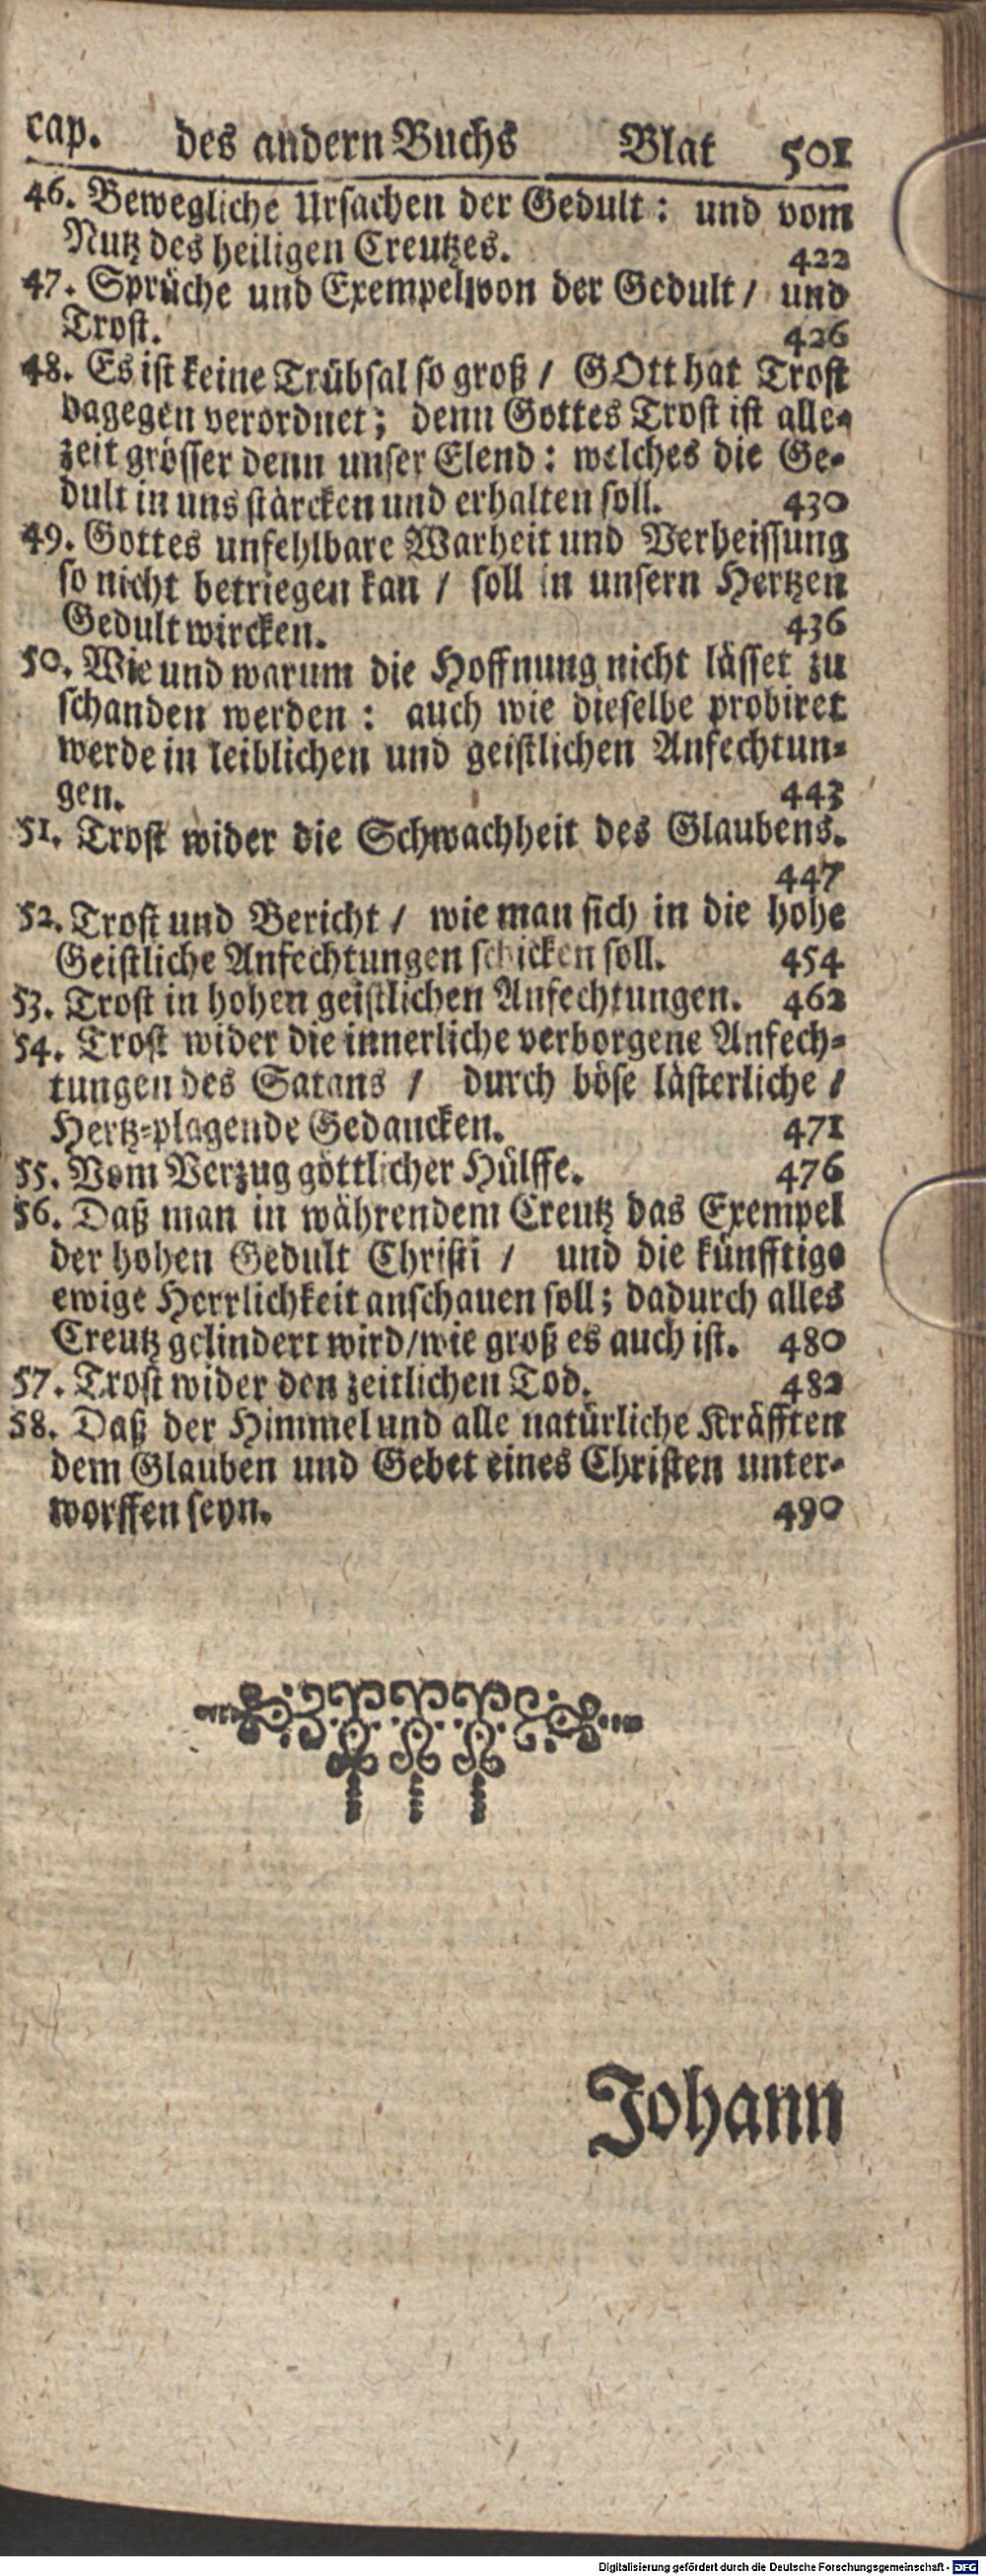 cap. des andern Buchs Blat 501
46. Bewegliche Ursachen der Gedult: und vom
Nutz des heiligen Creutzes. 422
47. Sprüche und Exempel von der Gedult / und
Trost. 426
48. Es ist keine Trübsal so groß / GOtt hat Trost
dagegen verordnet; denn Gottes Trost ist alle-
zeit grösser denn unser Elend: welches die Ge-
dult in uns stärcken und erhalten soll. 430
49. Gottes unfehlbare Warheit und Verheissung
so nicht betriegen kan / soll in unsern Hertzen
Gedult wircken. 436
50. Wie und warum die Hoffnung nicht lässet zu
schanden werden: auch wie dieselbe probiret
werde in leiblichen und geistlichen Anfechtun-
gen. 443
51. Trost wider die Schwachheit des Glaubens.
447
52. Trost und Bericht / wie man sich in die hohe
Geistliche Anfechtungen schicken soll. 454
53. Trost in hohen geistlichen Anfechtungen. 462
54. Trost wider die innerliche verborgene Anfech-
tungen des Satans / durch böse lästerliche /
Hertz-plagende Gedancken. 471
55. Vom Verzug göttlicher Hülffe. 476
56. Daß man in währendem Creutz das Exempel
der hohen Gedult Christi / und die künfftige
ewige Herrlichkeit anschauen soll; dadurch alles
Creutz gelindert wird/wie groß es auch ist. 480
57. Trost wider den zeitlichen Tod. 482
58. Daß der Himmel und alle natürliche Kräfften
dem Glauben und Gebet eines Christen unter-
worffen seyn. 490
Johann
Digitalisierung gefördert durch die Deutsche Forschungsgemeinschaft - DFG